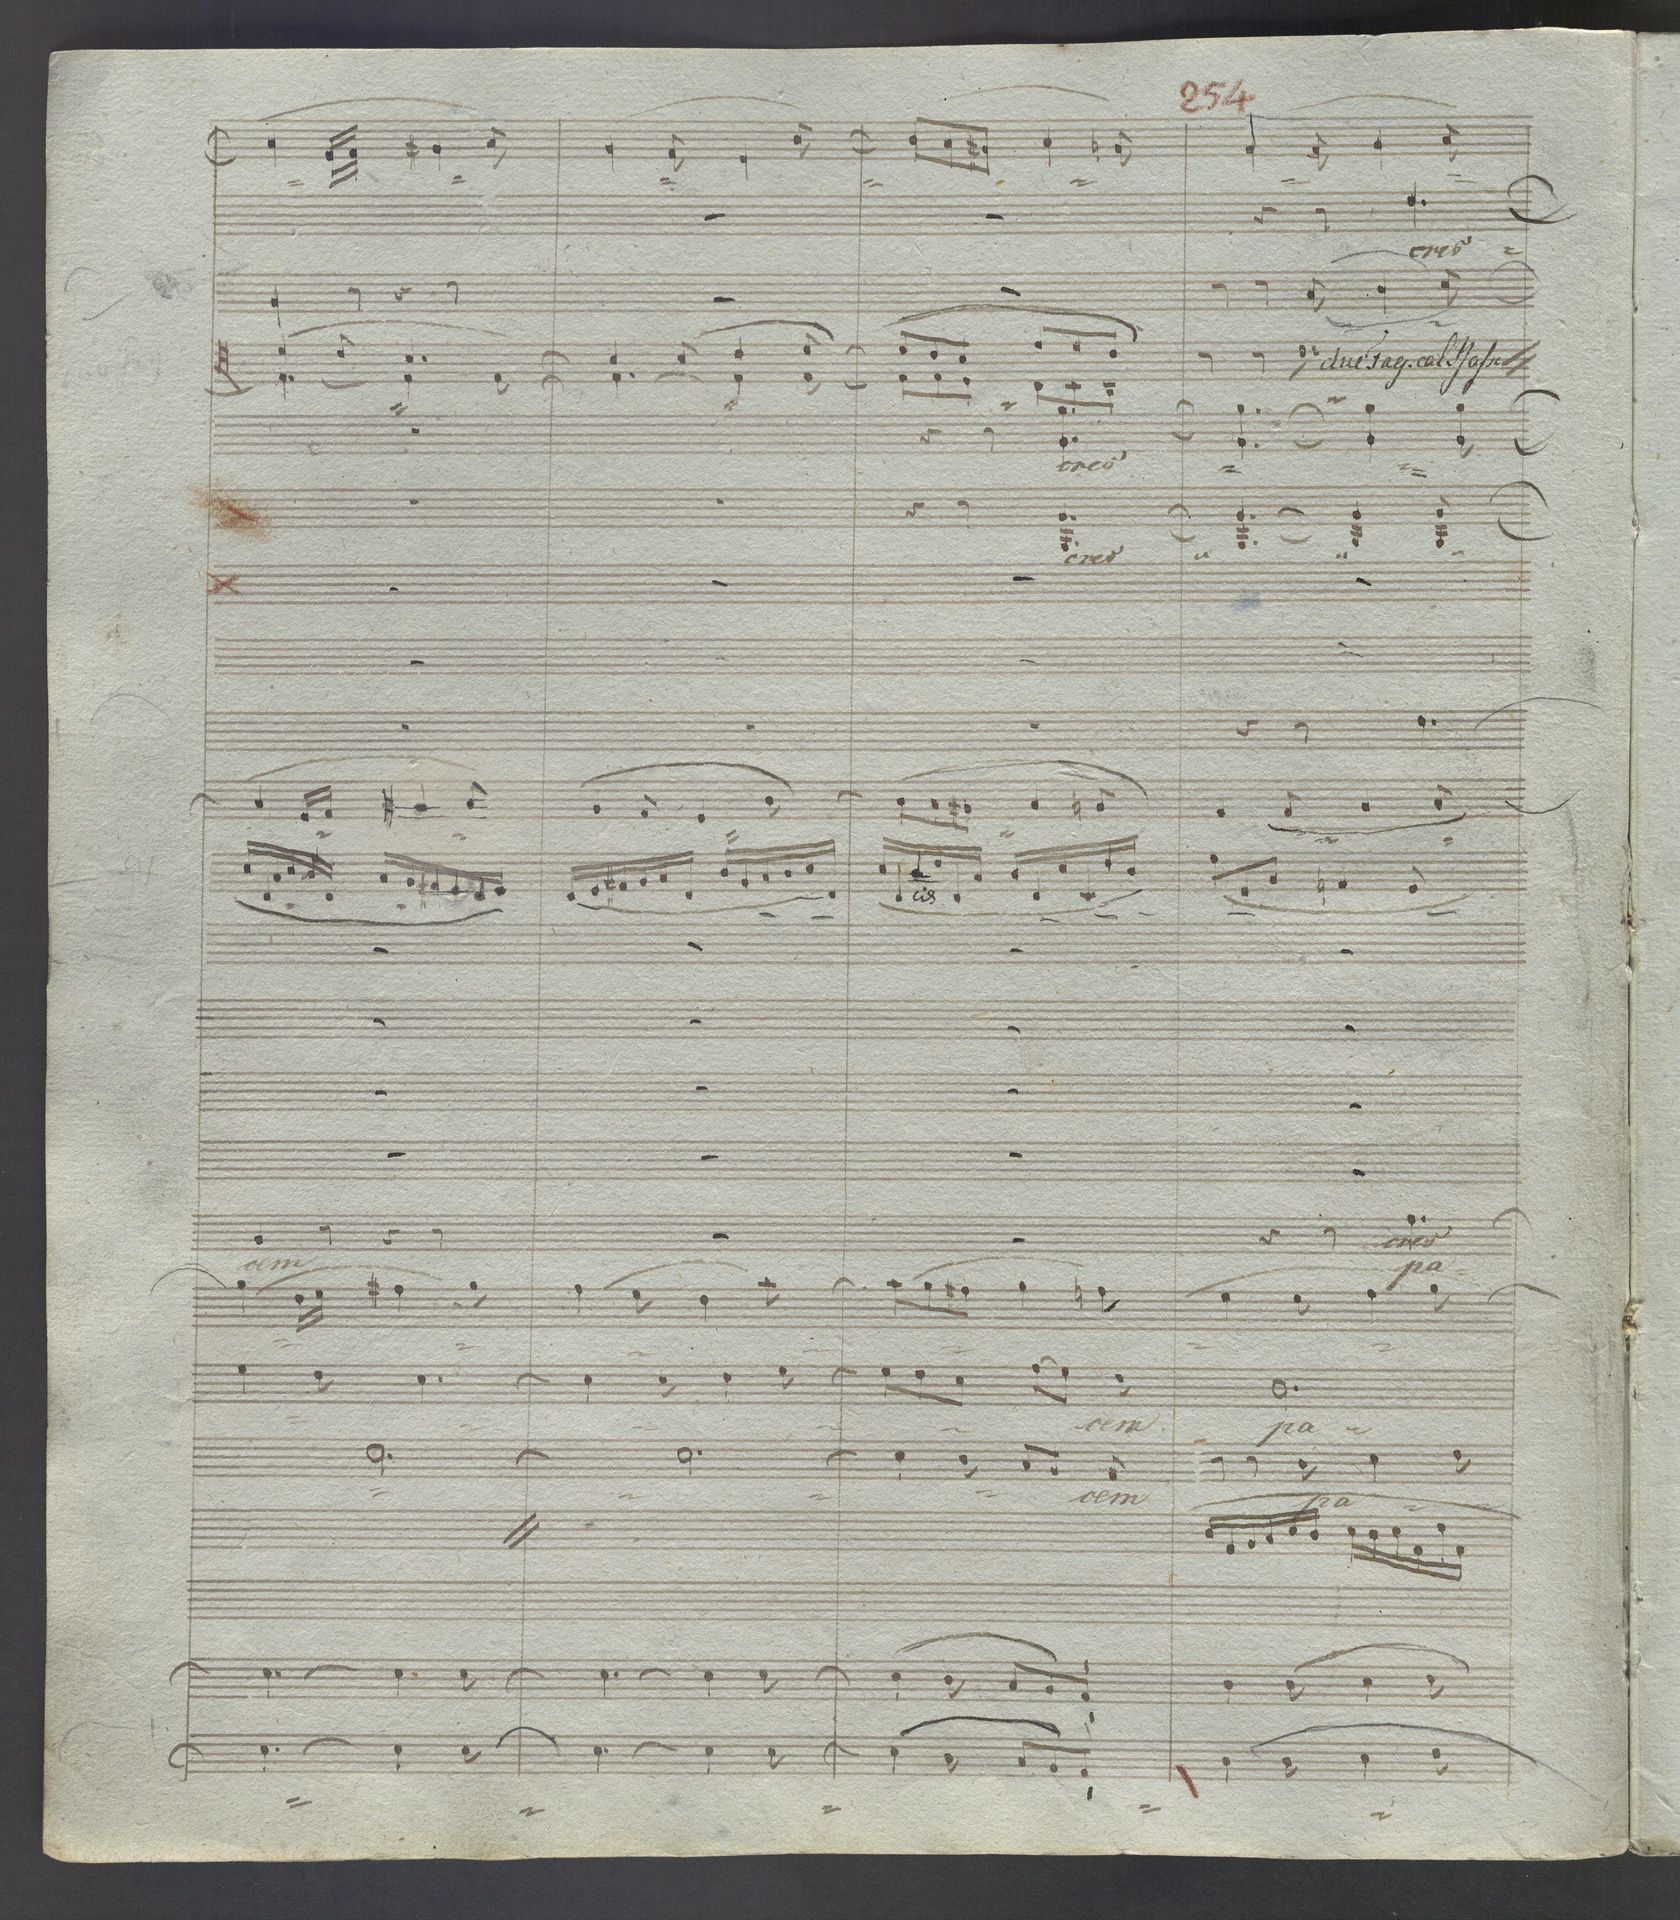 254
cres
due Fag. col Basso
cres
cres
cis
cres
cem
pa
cem
pa
cem
pa